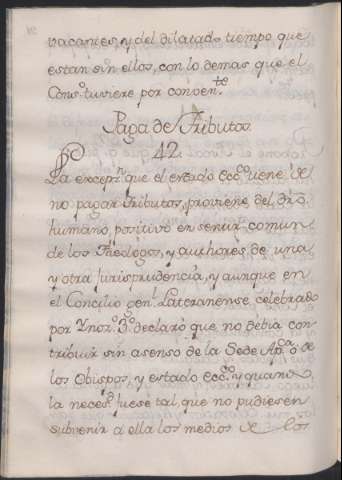 vacantes, y del dilatado tiempo que
estan sin ellos, con lo demas que el
Cons.º tuviere por conven.te
Paga de Tributos
42
La excepn. que el estado eccº. tiene de
no pagar tributos, proviene del dro.
humano positivo en sentir comun
de los Theologos, y authores de una
y otra Jurisprudencia, y aunque en
el Concilio genl. Lateranense celebrado
por Ynocº. 3º. declaró que no debia con
tribuir sin asenso de la Sede Apca. ó de
los Obispos, y estado eccº. y quando
la necesd. fuese tal que no pudiesen
subvenir a ella los medios de los